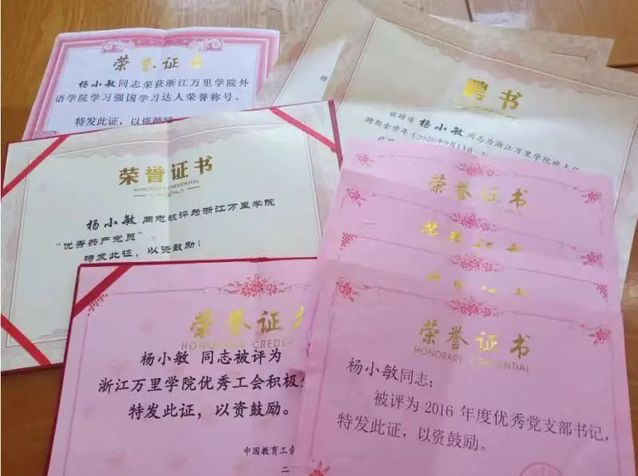 荣誉证
杨小敏同志荣获浙江万里学院外
语学院学习强国学习达人荣誉称号。
特发此证，以资鼓励
聘书
杨小敏同志为浙江万里学院
聘期壹学年
荣誉证书
HONORARY CREDENTIAL
杨小敏 同志被评为浙江万里学院
“优秀共产党员”
特发此证，以资鼓励！
荣誉证书
荣誉证
HONORARY CREDENTIAL
杨小敏 同志被评为
浙江万里学院优秀工会积极
特发此证，以资鼓励。
中国教育工会
二
荣誉证书
HONORARY CREDENTIAL
杨小敏同志：
被评为 2016 年度优秀党支部书记，
特发此证，以资鼓励。